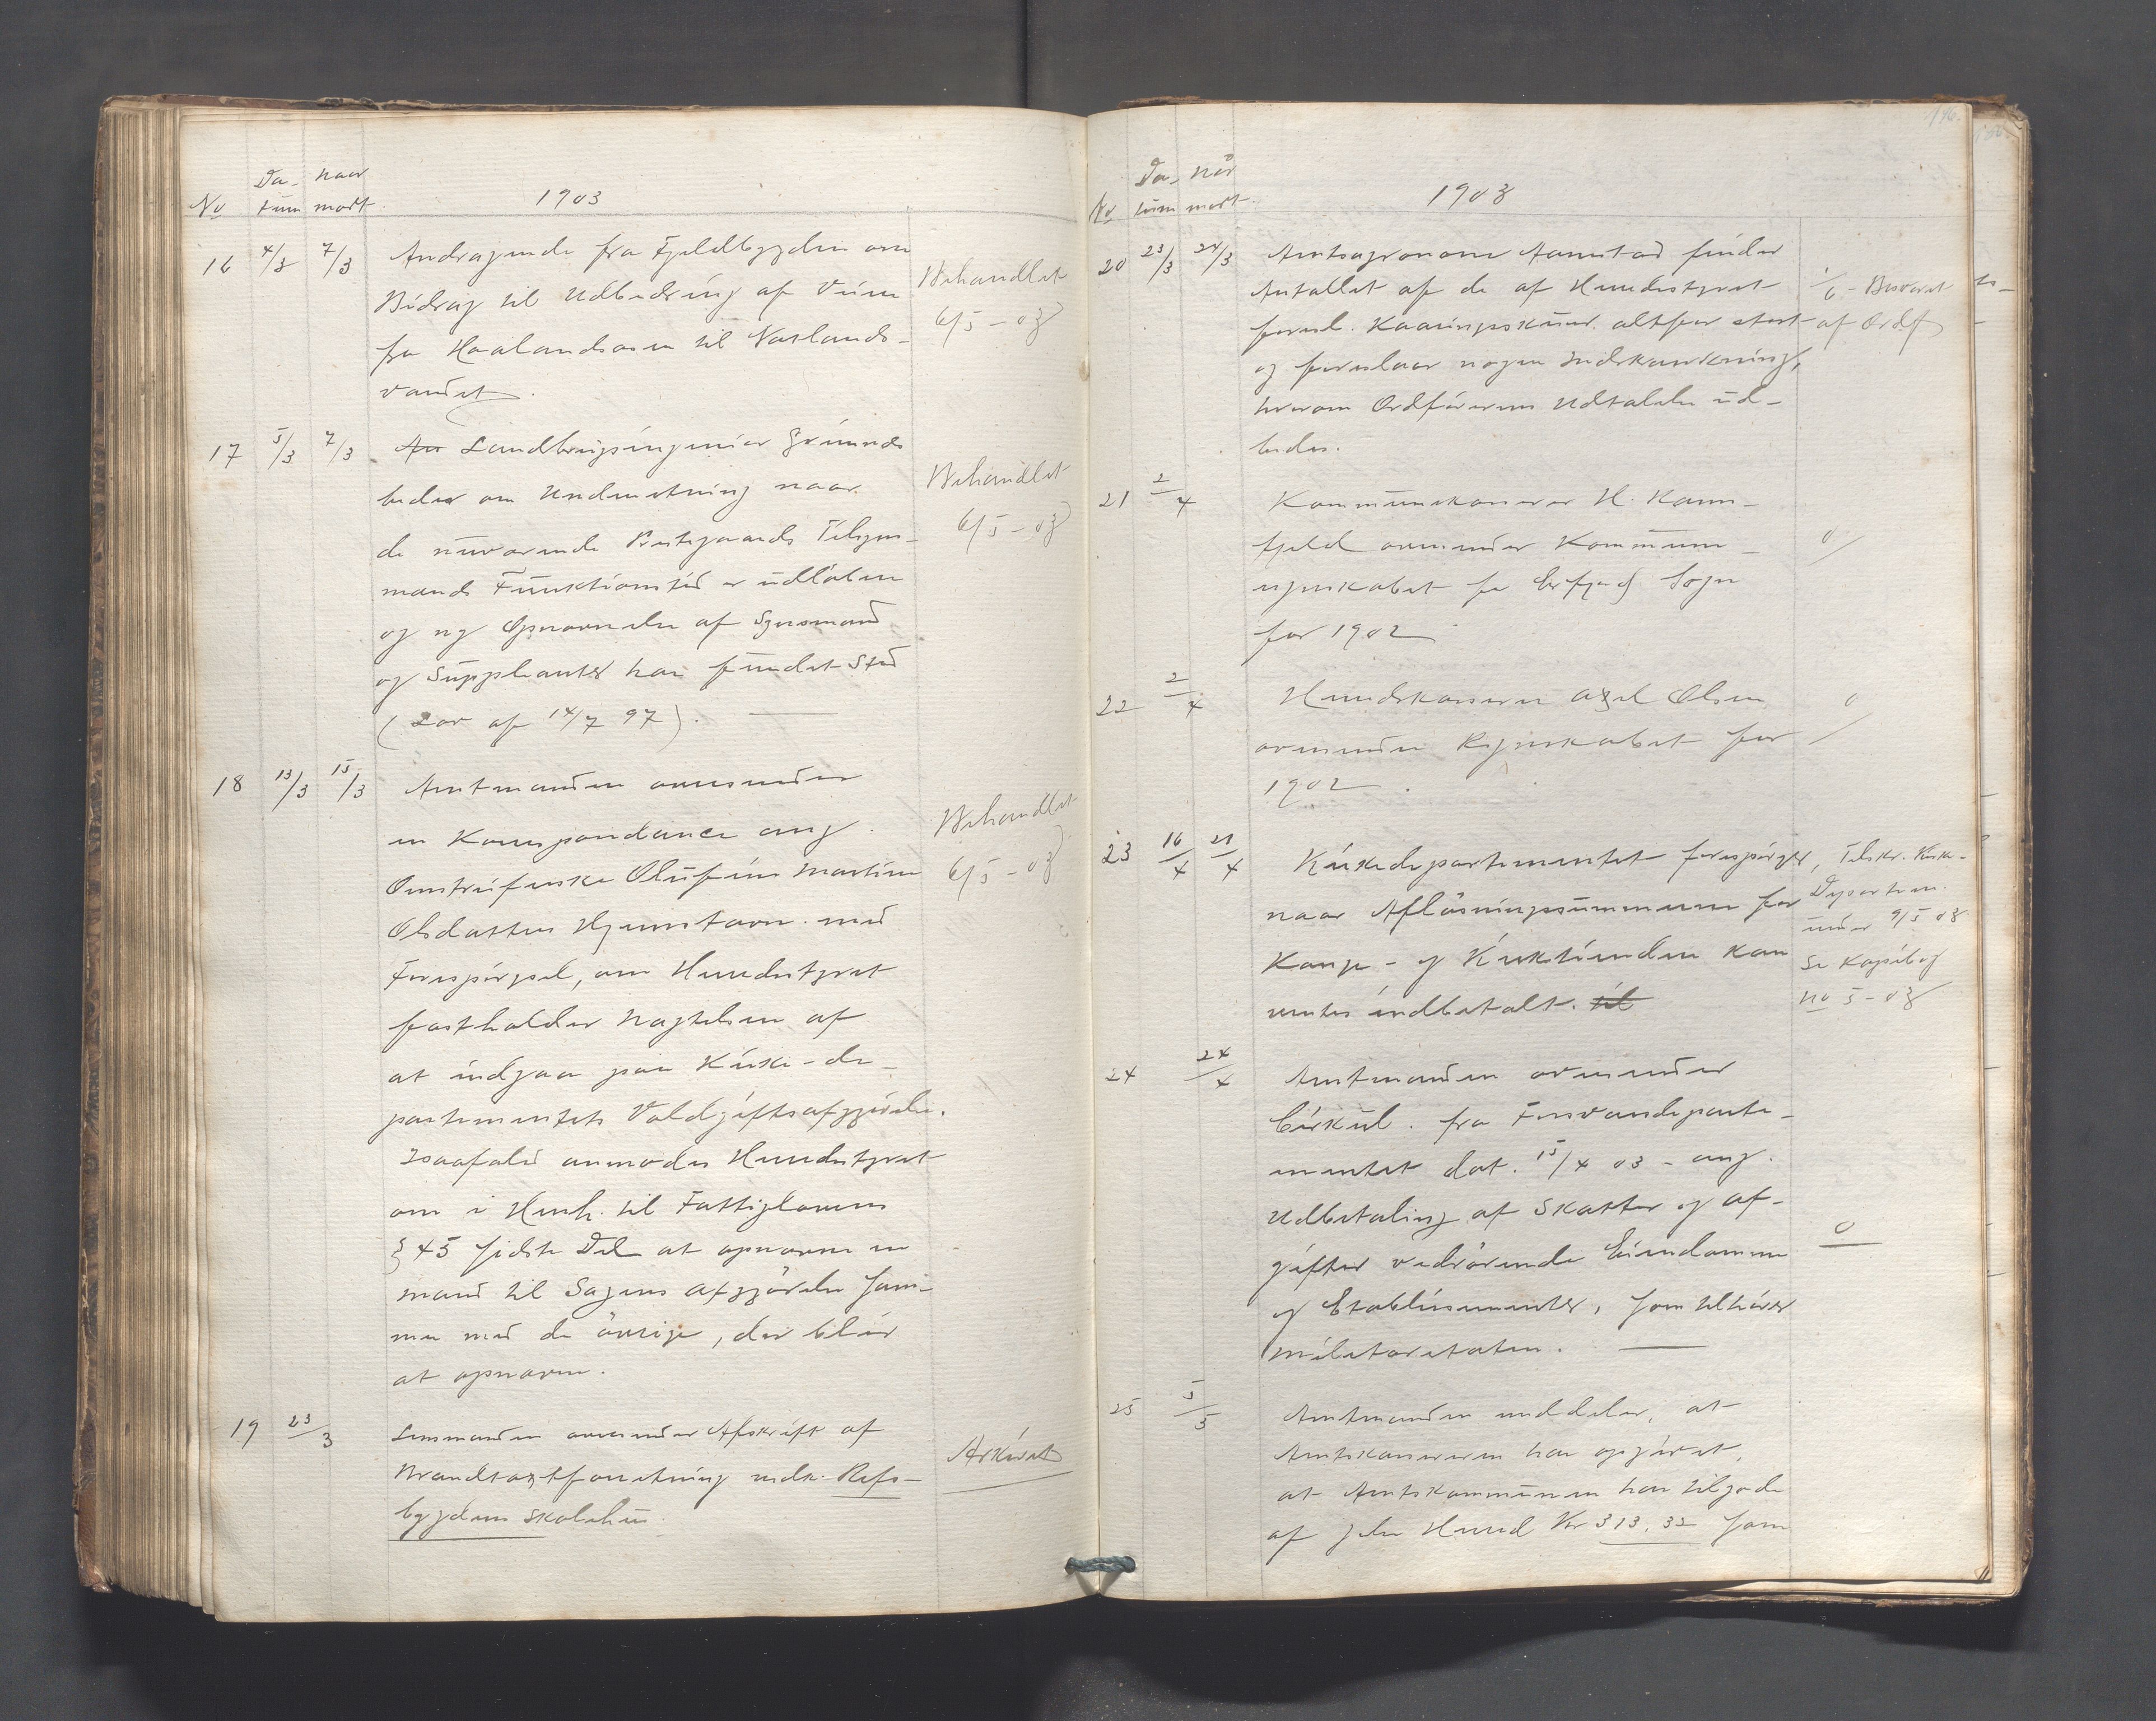 No Da- naar 1903
tum modt.
16 4/3 7/3 Andragende fra Fjeldbygden om
Bidrag til Udbedring af Veien
fra Haalandsosen til Natlands-
vandet.
Behandlet
6/5 - 03
17 5/3 7/3 An Landbrugsingeniør Grimnes
beder om Underretning naar
de nuværende Tilsyns-
mænds Funktionstid er udløben
og ny Opnævnelse af Synsmænd
og Suppleanter har fundet Sted
(Lov af 14/7 97).
Behandlet
6/5 - 03
18 13/3 15/3 Amtmanden oversender
en Korrespondance ang.
Omstreiferske Olufine Martine
Olsdatter Hjemstavn med
Forespørgsel, om Herredstyret
fastholder Nægtelsen af
at indgaa paa Kirke-de-
partementets Voldgiftsafgjørelse.
Isaafald anmodes Herredstyret
om i Henh. til Fattiglovens
§ 45 sidste Del at opnævne en
mand til Sagens Afgjørelse sam-
men med de øvrige, der blir
at opnævne.
Behandlet
6/5 - 03
19 23/3 Lensmanden oversender Afskrift af
Brandtaxtforretning vedr. Refs-
bygdens Skolehus.
Arkivet
No Da- når 1903
tum modt.
20 23/3 24/3 Amtsagronom Aamstad finder
Antallet af de af Herredstyret
foresl. Kaaringsskuer altfor stort
og foreslaar nogen Indskrænkning,
hvorom Ordførerens Udtalelse ud-
bedes.
1/6 - Besvaret
af Ordf
21 2/4 Kommunekasserer H. Ravn-
fjeld oversender Kommune-
regnskabet for Erfjord Sogn
for 1902
0
22 2/4 Herredskasserer Axel Olsen
oversender Regnskabet for
1902.
0
23 16/4 21/4 Kirkedepartementet forespørger,
naar Afløsningssummerne for
Konge- og Kirketienden kan
ventes indbetalt. til
Tilskr. Kirke-
Departem.
under 9/5 03
Se Kopibog
No 5 - 03
24 24/4 Amtmanden oversender
Cirkul. fra Forsvarsdeparte-
mentet dat. 15/4 03 - ang.
Udbetaling af Skatter og af-
gifter vedrørende Eiendomme
og Etablissementer, som tilhører
militæretaten.
0
25 5/5 Amtmanden meddeler, at
Amtskassereren har opgivet,
at Amtskommunen har tilgode
af Jelse Herred Kr 313,32 som